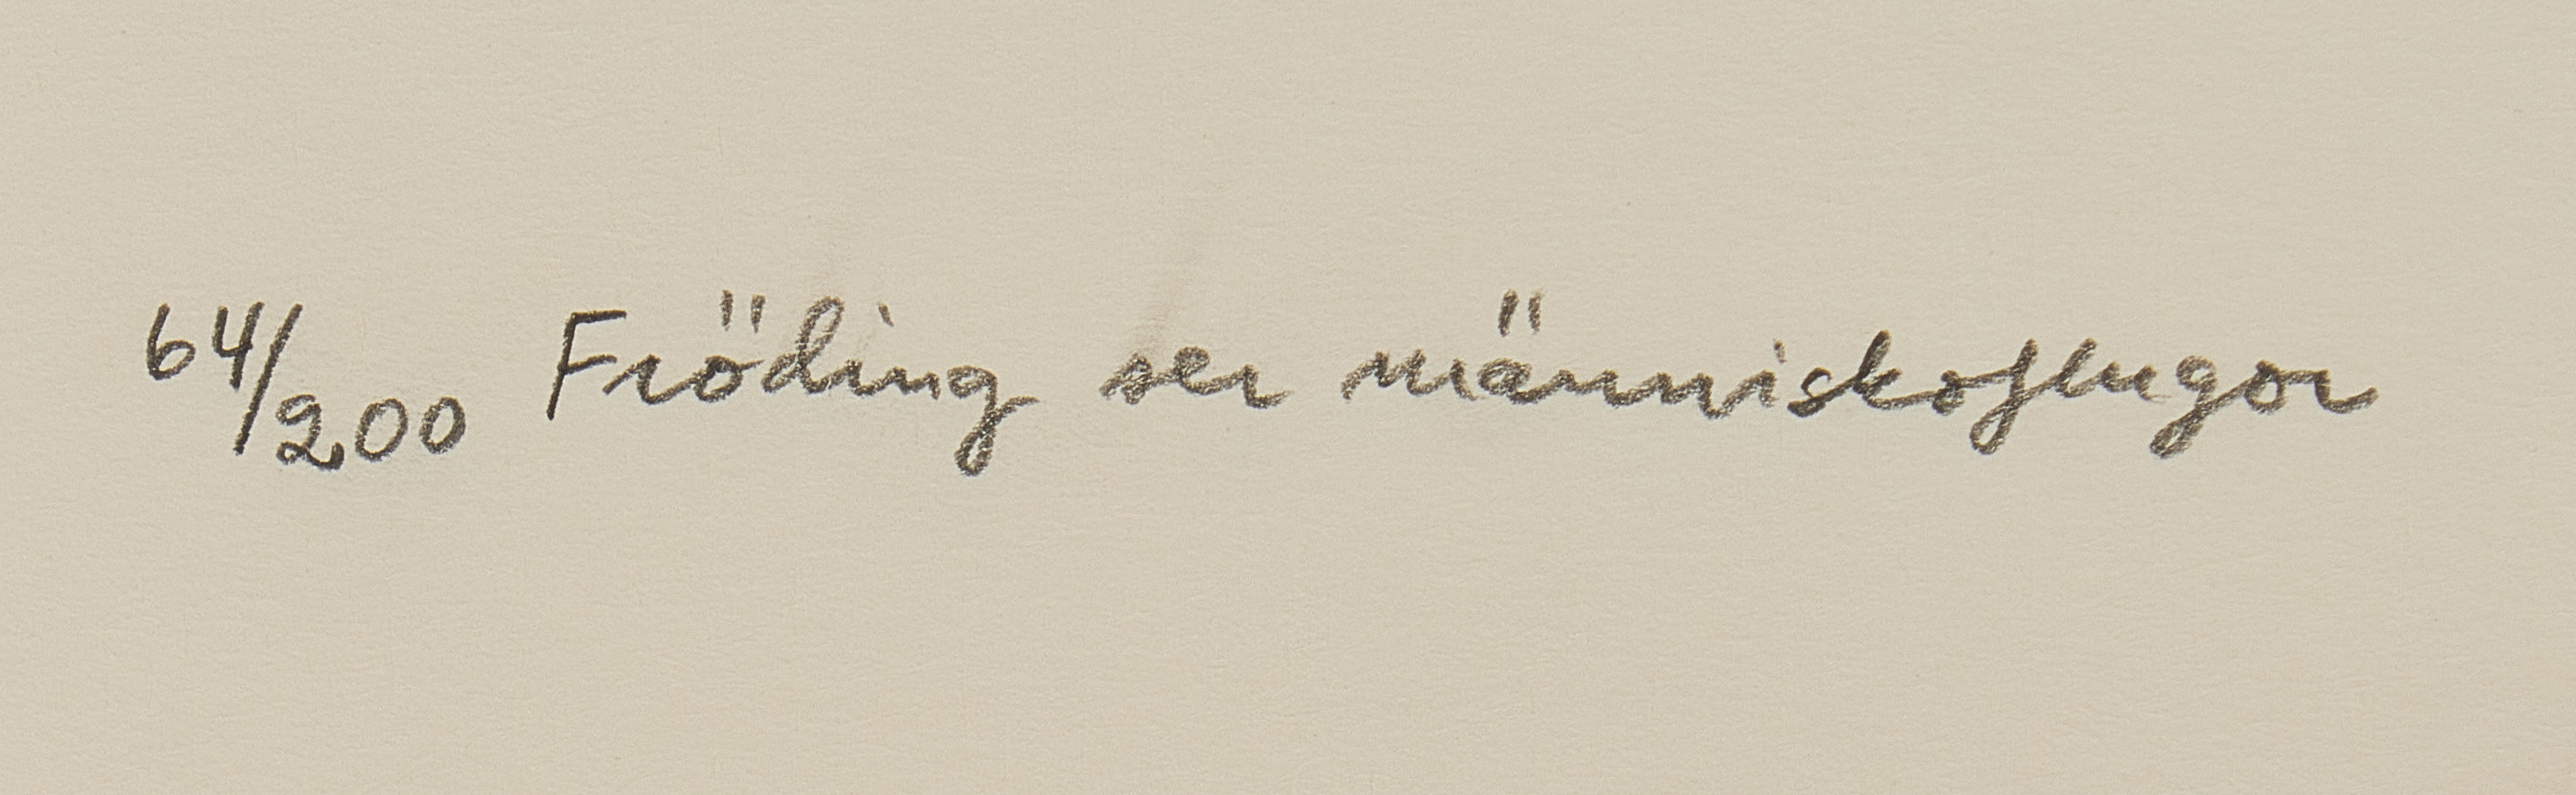 64/200 Fröding ser människoflugor